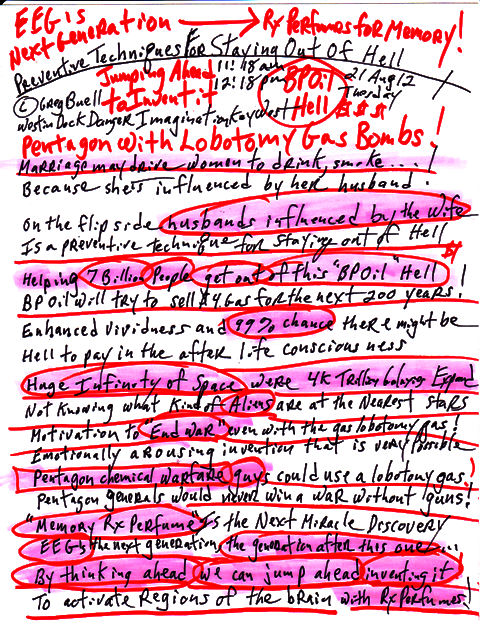 EEG is
Next Generation → Rx Perfumes for Memory!
Preventive Techniques For Staying Out Of Hell
Jumping Ahead 11:18 am
to Invent it 12:18 pm
BP Oil Hell $$$
21 Aug 12
Tuesday
© Greg Buell
Westin Dock Danger Imagination Key West
Pentagon with Lobotomy Gas Bombs!
Marriage may drive women to drink, smoke....!
Because she's influenced by her husband.
On the flip side husbands influenced by the wife
Is a preventive technique for staying out of Hell
Helping 7 Billion People get out of this "BP Oil" Hell!
BP Oil will try to sell $4 Gas for the next 200 years.
Enhanced vividness and 99% chance there might be
Hell to pay in the after life consciousness
Huge Infinity of Space were 4K Expand
Not Knowing what Kind of Aliens are at the Nearest stars
Motivation to "End War" even with the gas lobotomy gas!
Emotionally arousing invention that is very possible
Pentagon chemical warfare guys could use a lobotomy gas!
Pentagon generals would never win a war without guns!
"Memory Rx Perfume" Is the Next Miracle Discovery
EEG's the next generation, the generation after this one...
By thinking ahead we can jump ahead inventing it
To activate Regions of the brain with Rx Perfumes!